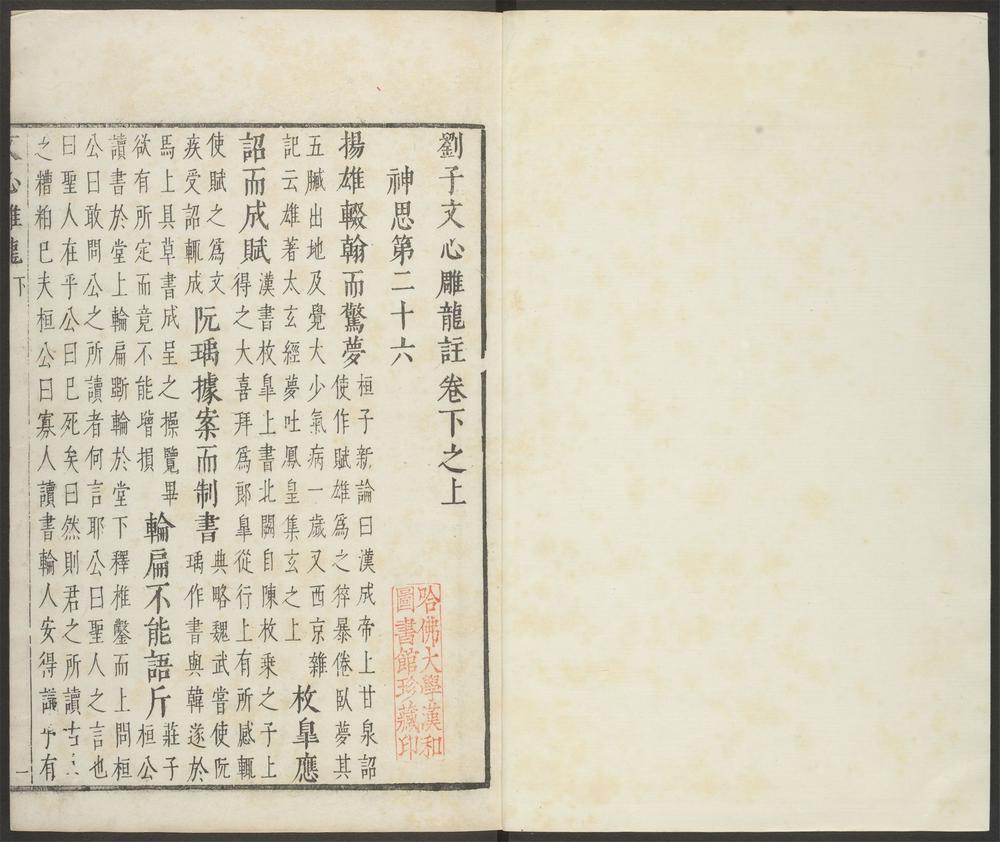 劉子文心雕龍註卷下之上
哈佛大學漢和
圖書館珍藏印
神思第二十六
揚雄輟翰而驚夢
桓子新論曰漢成帝上甘泉詔
使作賦雄爲之猝暴倦臥夢其
五臟出地及覺大少氣病一歲又西京雜
記云雄著太玄經夢吐鳳皇集玄之上
枚皐應
詔而成賦
漢書枚皐上書北闕自陳枚乘之子上
得之大喜拜爲郎皐從行上有所感輒
使賦之爲文
疾受詔輒成
阮瑀據案而制書
典略魏武嘗使阮
瑀作書與韓遂於
馬上具草書成呈之操覽畢
欲有所定而竟不能增損
輪扁不能語斤
莊子
桓公
讀書於堂上輪扁斲輪於堂下釋椎鑿而上問桓
公曰敢問公之所讀者何言耶公曰聖人之言也
曰聖人在乎公曰巳死矣曰然則君之所讀古
之糟粕巳夫桓公曰寡人讀書輪人安得議乎有
文心雕龍 下 一